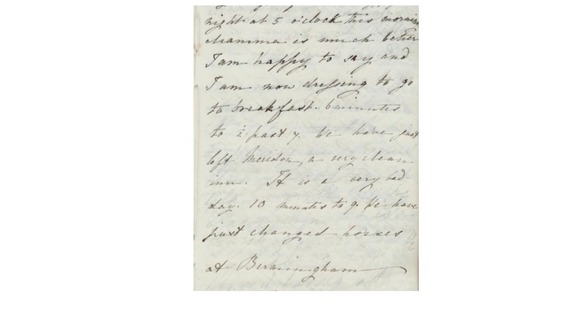 night at 5 o'clock this morning
Mamma is much better
I am happy to say and
I am now dressing to go
to breakfast. 6 minutes
to ½ past 7. We have just
left Meriden, a very clean
inn. It is a very bad
day. 10 minutes to 9. We have
just changed horses
at Birmingham